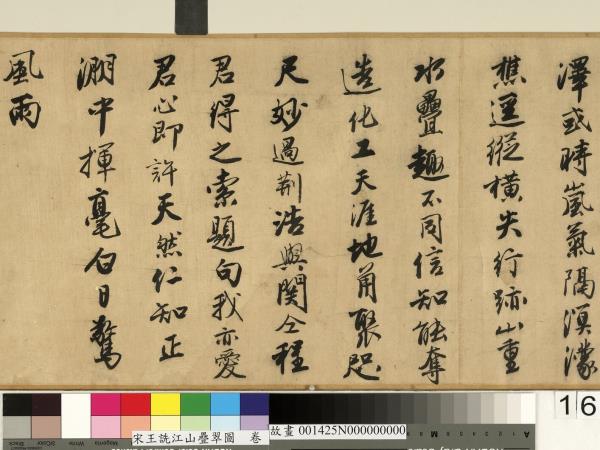 澤或時嵐氣隔溟濛
樵逕縱橫失行跡山重
水疊趣不同信知能奪
造化工天涯地角聚咫
尺妙過荆浩與関仝程
君得之索題句我亦愛
君心即許天然仁知正
淵中揮毫白日驚
風雨
16
宋王詵江山疊翠圖 卷
故畫 001425N000000000